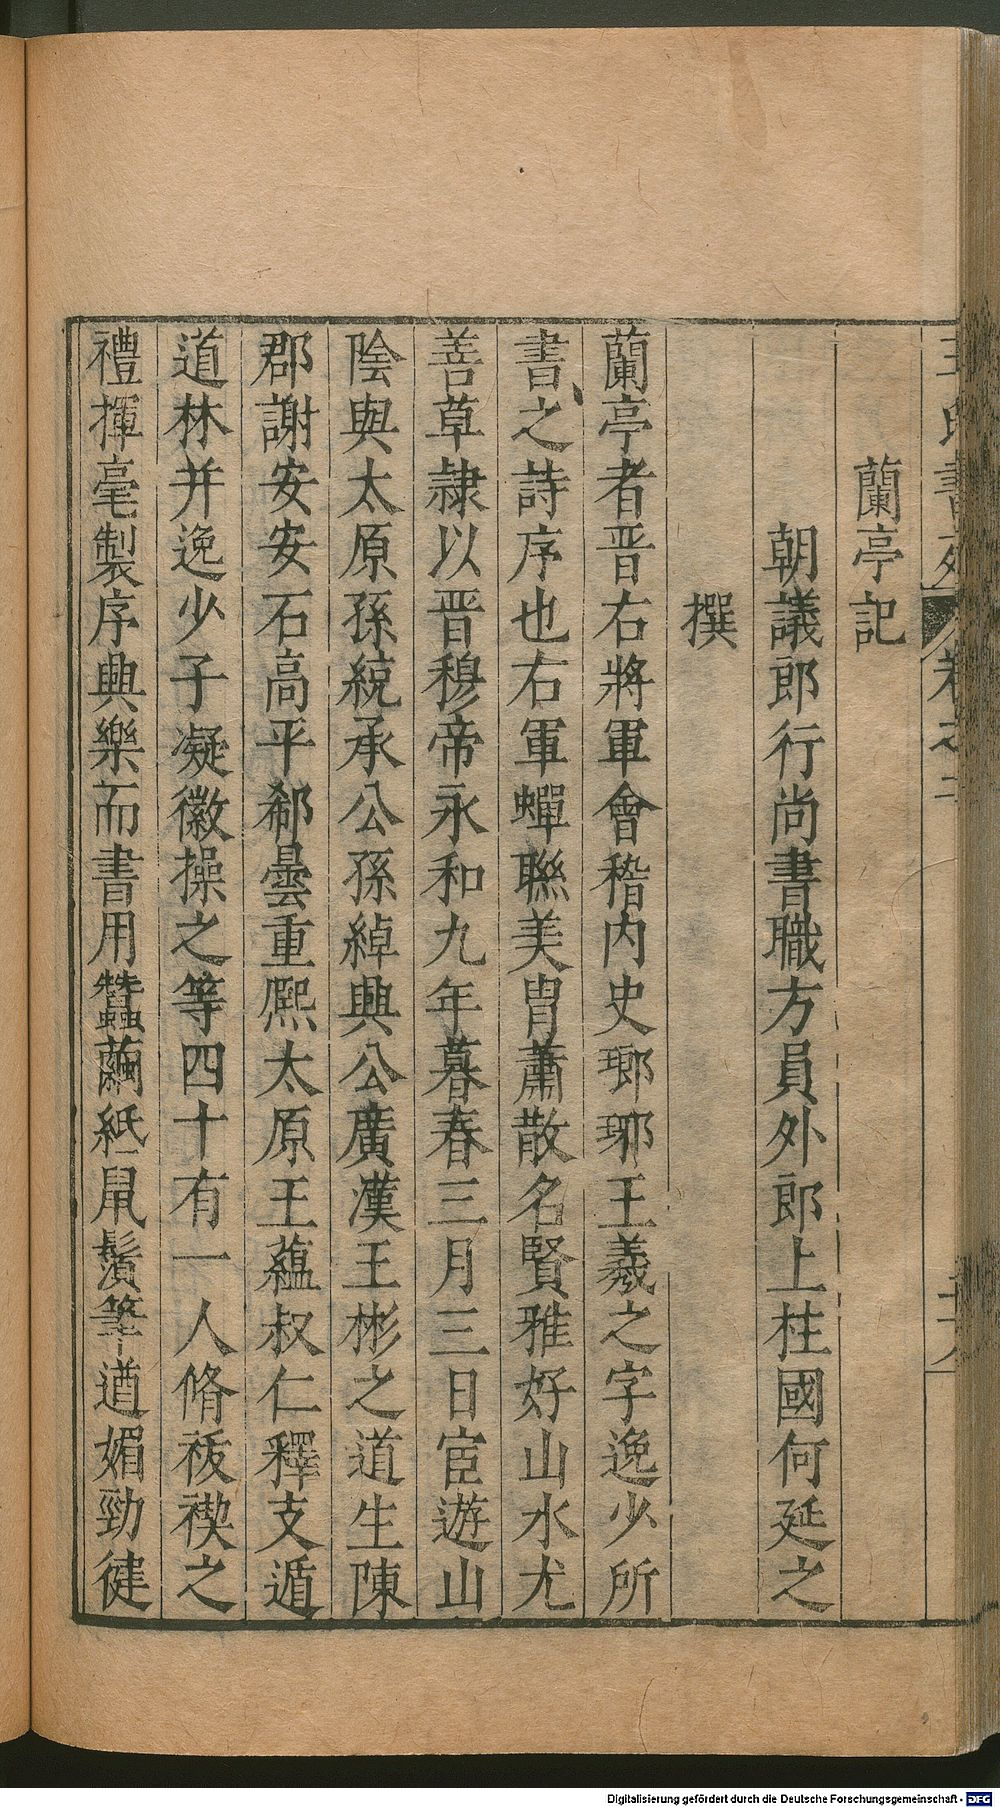 王氏書苑 卷之二
蘭亭記
朝議郎行尚書職方員外郎上柱國何延之
撰
蘭亭者晋右將軍會稽内史瑯琊王羲之字逸少所
書之詩序也右軍蟬聯美胄蕭散名賢雅好山水尤
善草隷以晋穆帝永和九年暮春三月三日宦遊山
陰與太原孫統承公孫綽興公廣漢王彬之道生陳
郡謝安安石高平郗曇重熈太原王蘊叔仁釋支遁
道林并逸少子凝徽操之等四十有一人脩祓禊之
禮揮毫製序興樂而書用蠶繭紙鼠鬚筆遒媚勁健
Digitalisierung gefördert durch die Deutsche Forschungsgemeinschaft - DFG